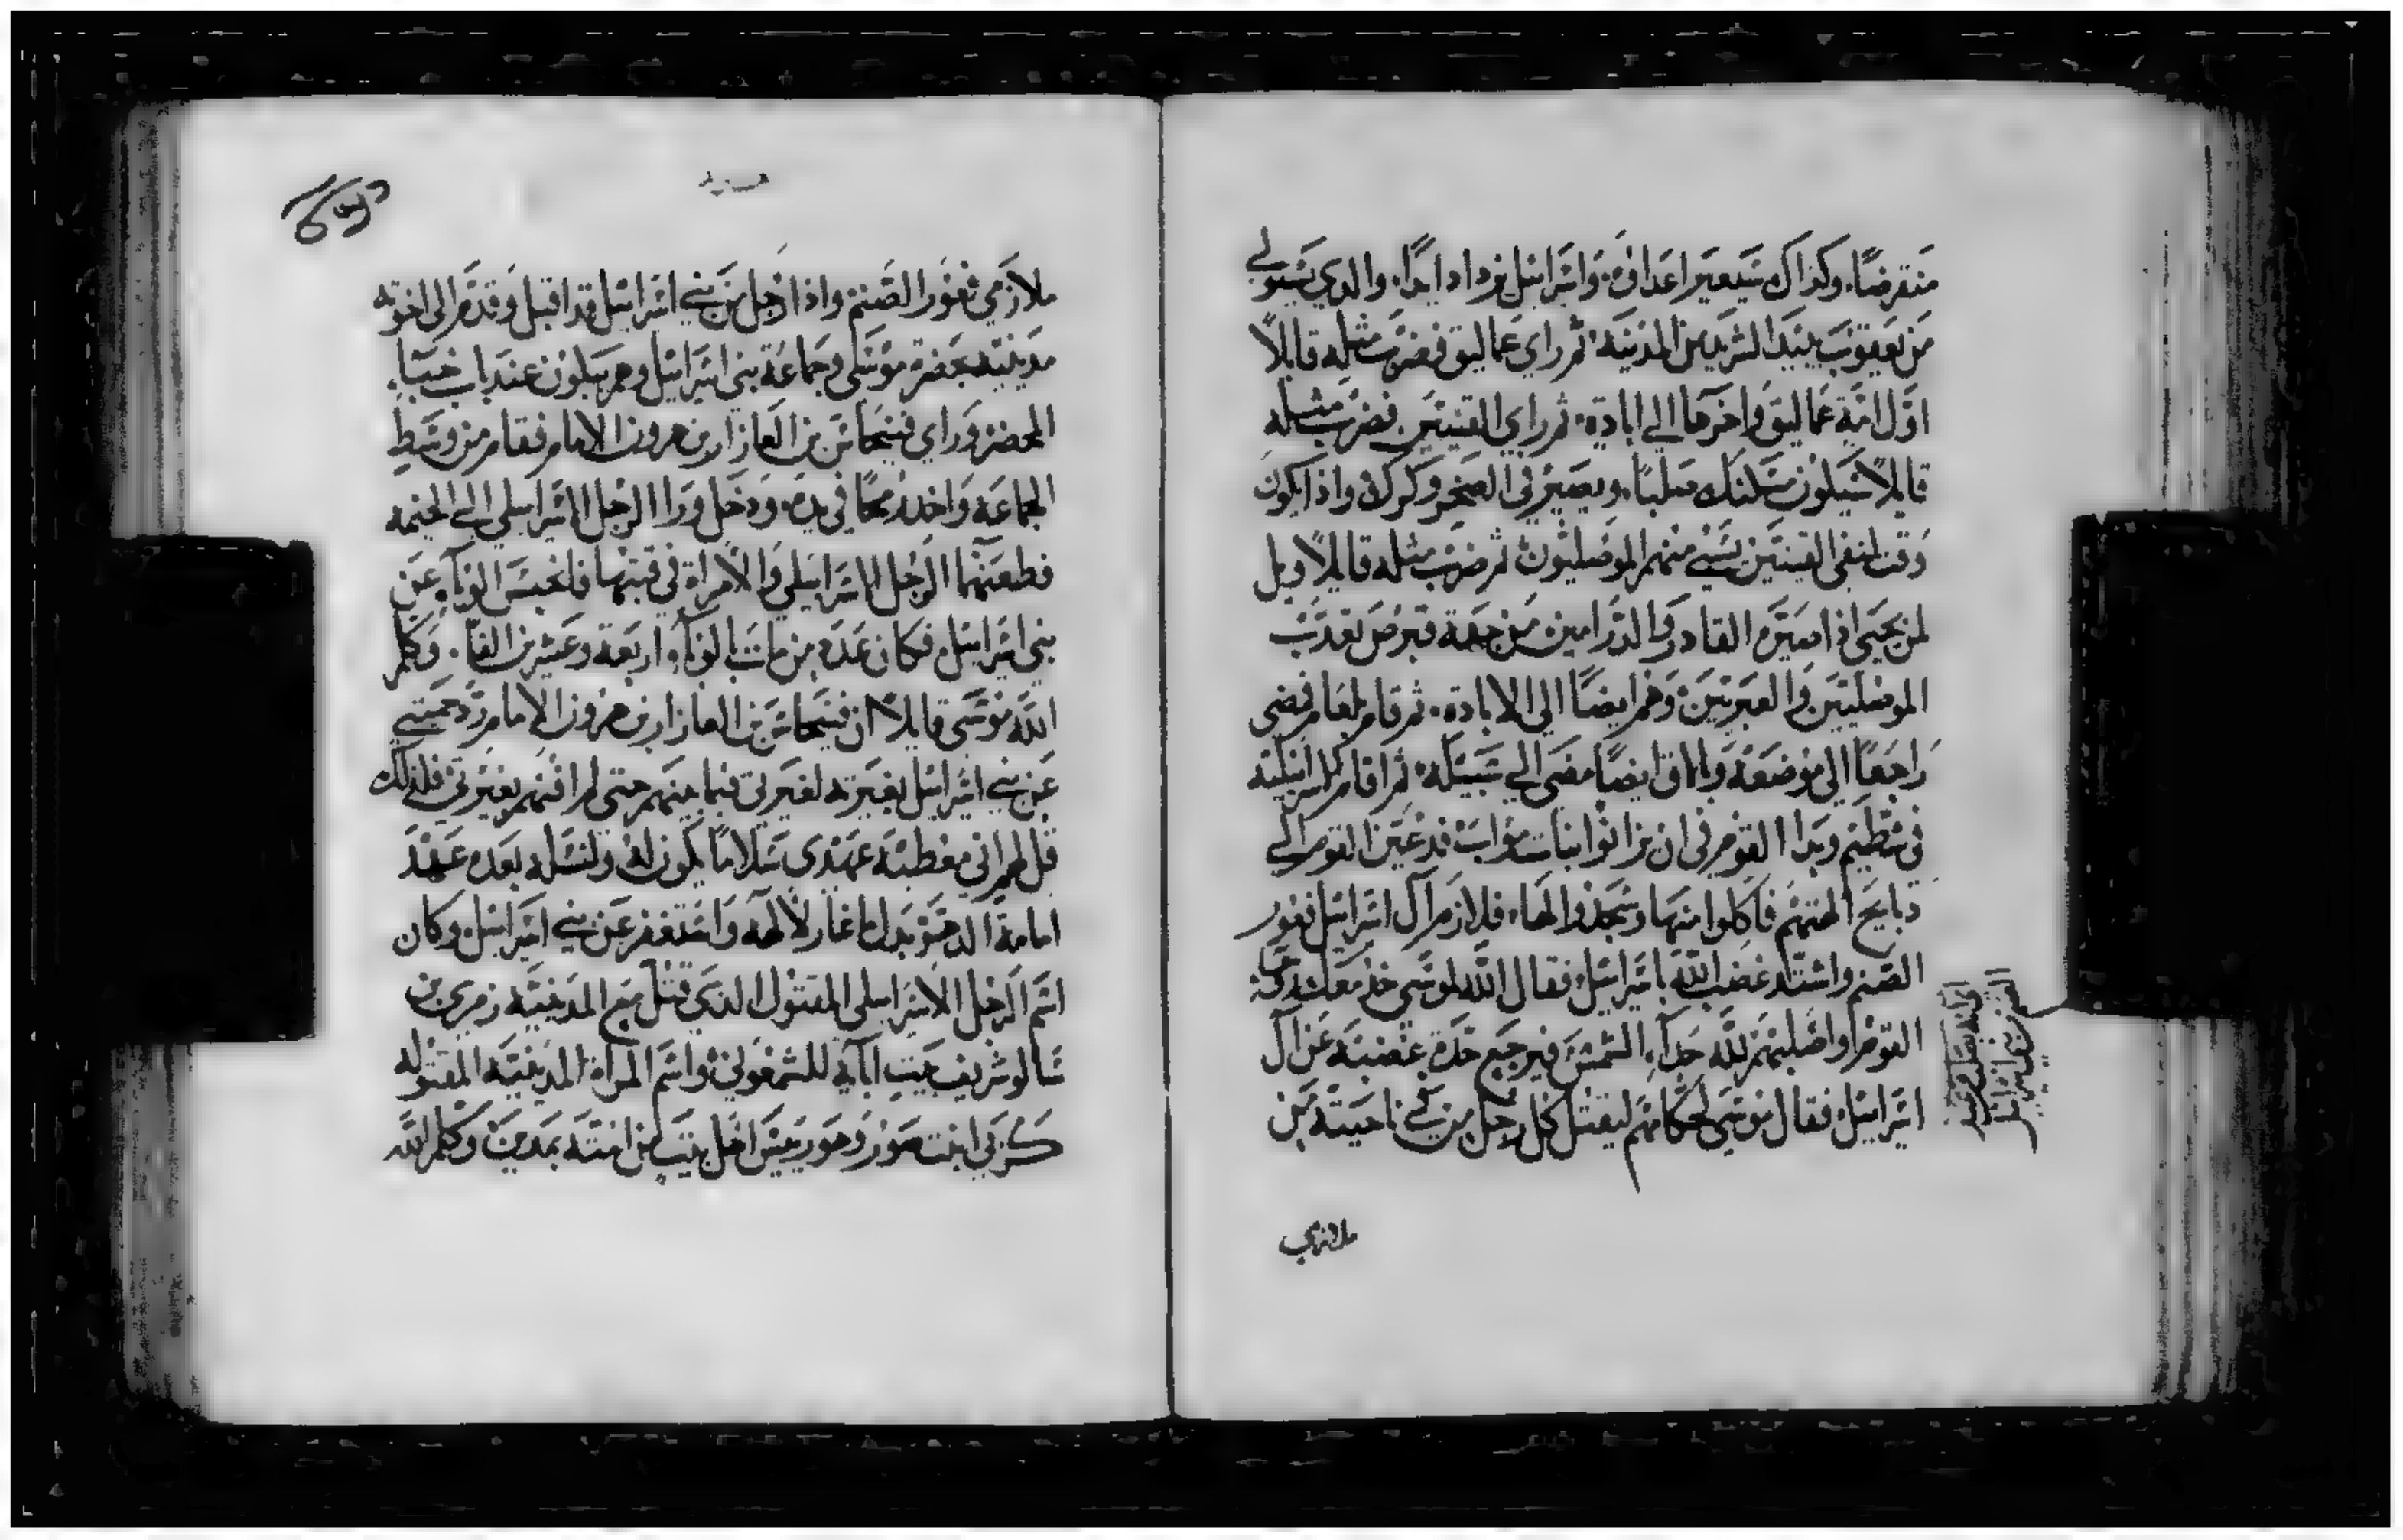 منقرضًا. وكذاك سيعير اعداوة. واسرايىل يزداد ايدًا. والدي يستولي
من يعقوب يبيد الشريد من المدينة. ثم راي عماليق فضرب مثله قايلاً
اوّل امّة عماليق واخرها الي ابادة. ثم راي القينيين فضرب مثله
قايلاً سيكون مسكنك صلبًا. ويصير في الصخر وكرك واذا يكون
وقت لنفي القينيين يسبي منهم الموصليون ثم ضرب مثله قايلاً ويل
لمن يحيى اذا صيّره القادر والدرامين من جهة قبرص تعذب
الموصليين والعبريين وهم ايضًا الي الابادة. ثم قام بلعام فمضي
راجعًا الي موضعه وبالاق ايضًا مضي الي سبيله. ثم اقام ال اسرايىل
في شطيم وبدا القوم في ان يزانوا بنات مواب فدعين القوم الي
دبايح الهتهم فاكلوا منها وسجدوا لها. فلازم آل اسرايىل فغور
الصنم واشتد غضب الله باسرايىل فقال الله لموسي خد معك
القوم واصلبهم لله حداء الشمس فيرجع حدة غضبه عن آل
اسرايىل فقال موسي لحكامهم ليقتل كل رجل من في ناحيته من
ملازمي
ملازمي فغور الصنم واذا رجل من بني اسرايىل قد اقبل وقدم الى اخوته
مدينيه بحضرة موسي وجماعة بني اسرايىل وهم يبكون عند باب خباء
المحضر وراي فينحاس بن العازار بن هرون الامام فقام من وسط
الجماعة واخد رمحًا في يده ودخل ورا الرجل الاسرايىلي الي الخيمه
فطعنهما الرجل الاسرايىلي والامراة في قبتها فانحبس الوباء عن
بني اسرايىل فكان عدة من مات بالوباء اربعة وعشرين الفاً. وكلم
الله موسي قايلاً ان فينحاس بن العازار بن هرون الامام رد حميتي
عن بني اسرايىل بغيرته لغيرتي فيما بينهم حتى لم افنهم بغيرتي فلذلك
قل لهم اني معطيه عهدي سلامًا يكون له ولنسله بعده عهد
امامة الدهر بدل ما غار لالهه واستغفر عن بني اسرايىل وكان
اسم الرجل الاسرايىلي المقتول الذي قتل مع المدينيه زمري بن
سالو شريف بيت ابايه للشمعوني واسم المراة المدينيه المقتوله
كزبي ابنت صور وهو رييس اهل بيت من امته بمدين وكلم الله